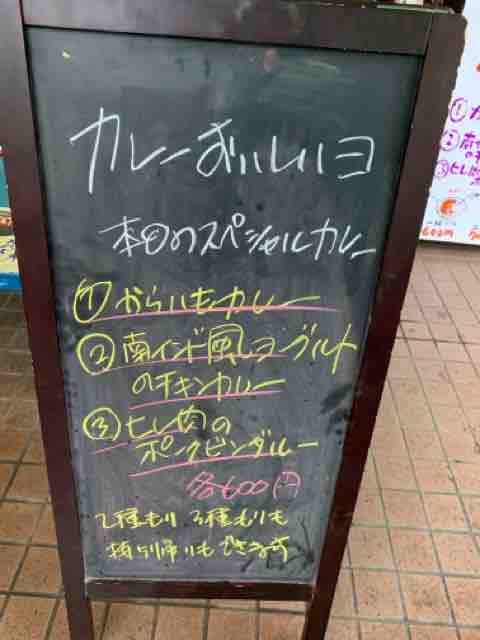 カレーおいしいヨ
本日のスペシャルカレー
①からいもカレー
②南インド風ヨーグルト
のチキンカレー
③ヒレ肉の
ポークビンダルー
各600円
2種もり 3種もりも
持ち帰りもできます
①カ
②南
のチ
③ヒレ
600円